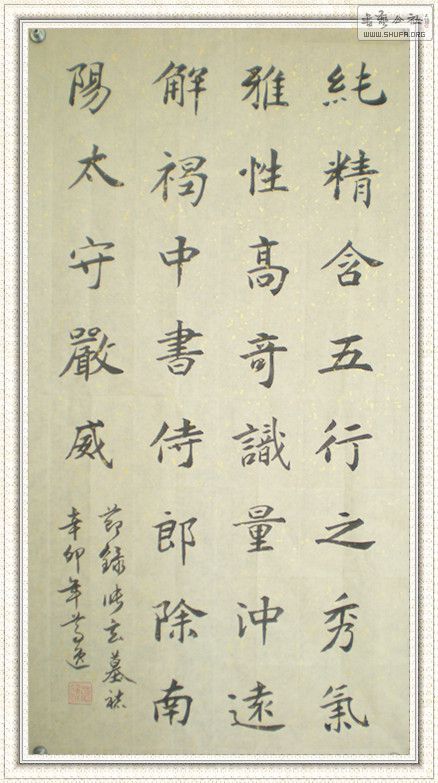 純精含五行之秀氣
雅性高奇識量沖遠
解褐中書侍郎除南
陽太守嚴威
節錄張玄墓誌
辛卯年
WWW.SHUFA.ORG